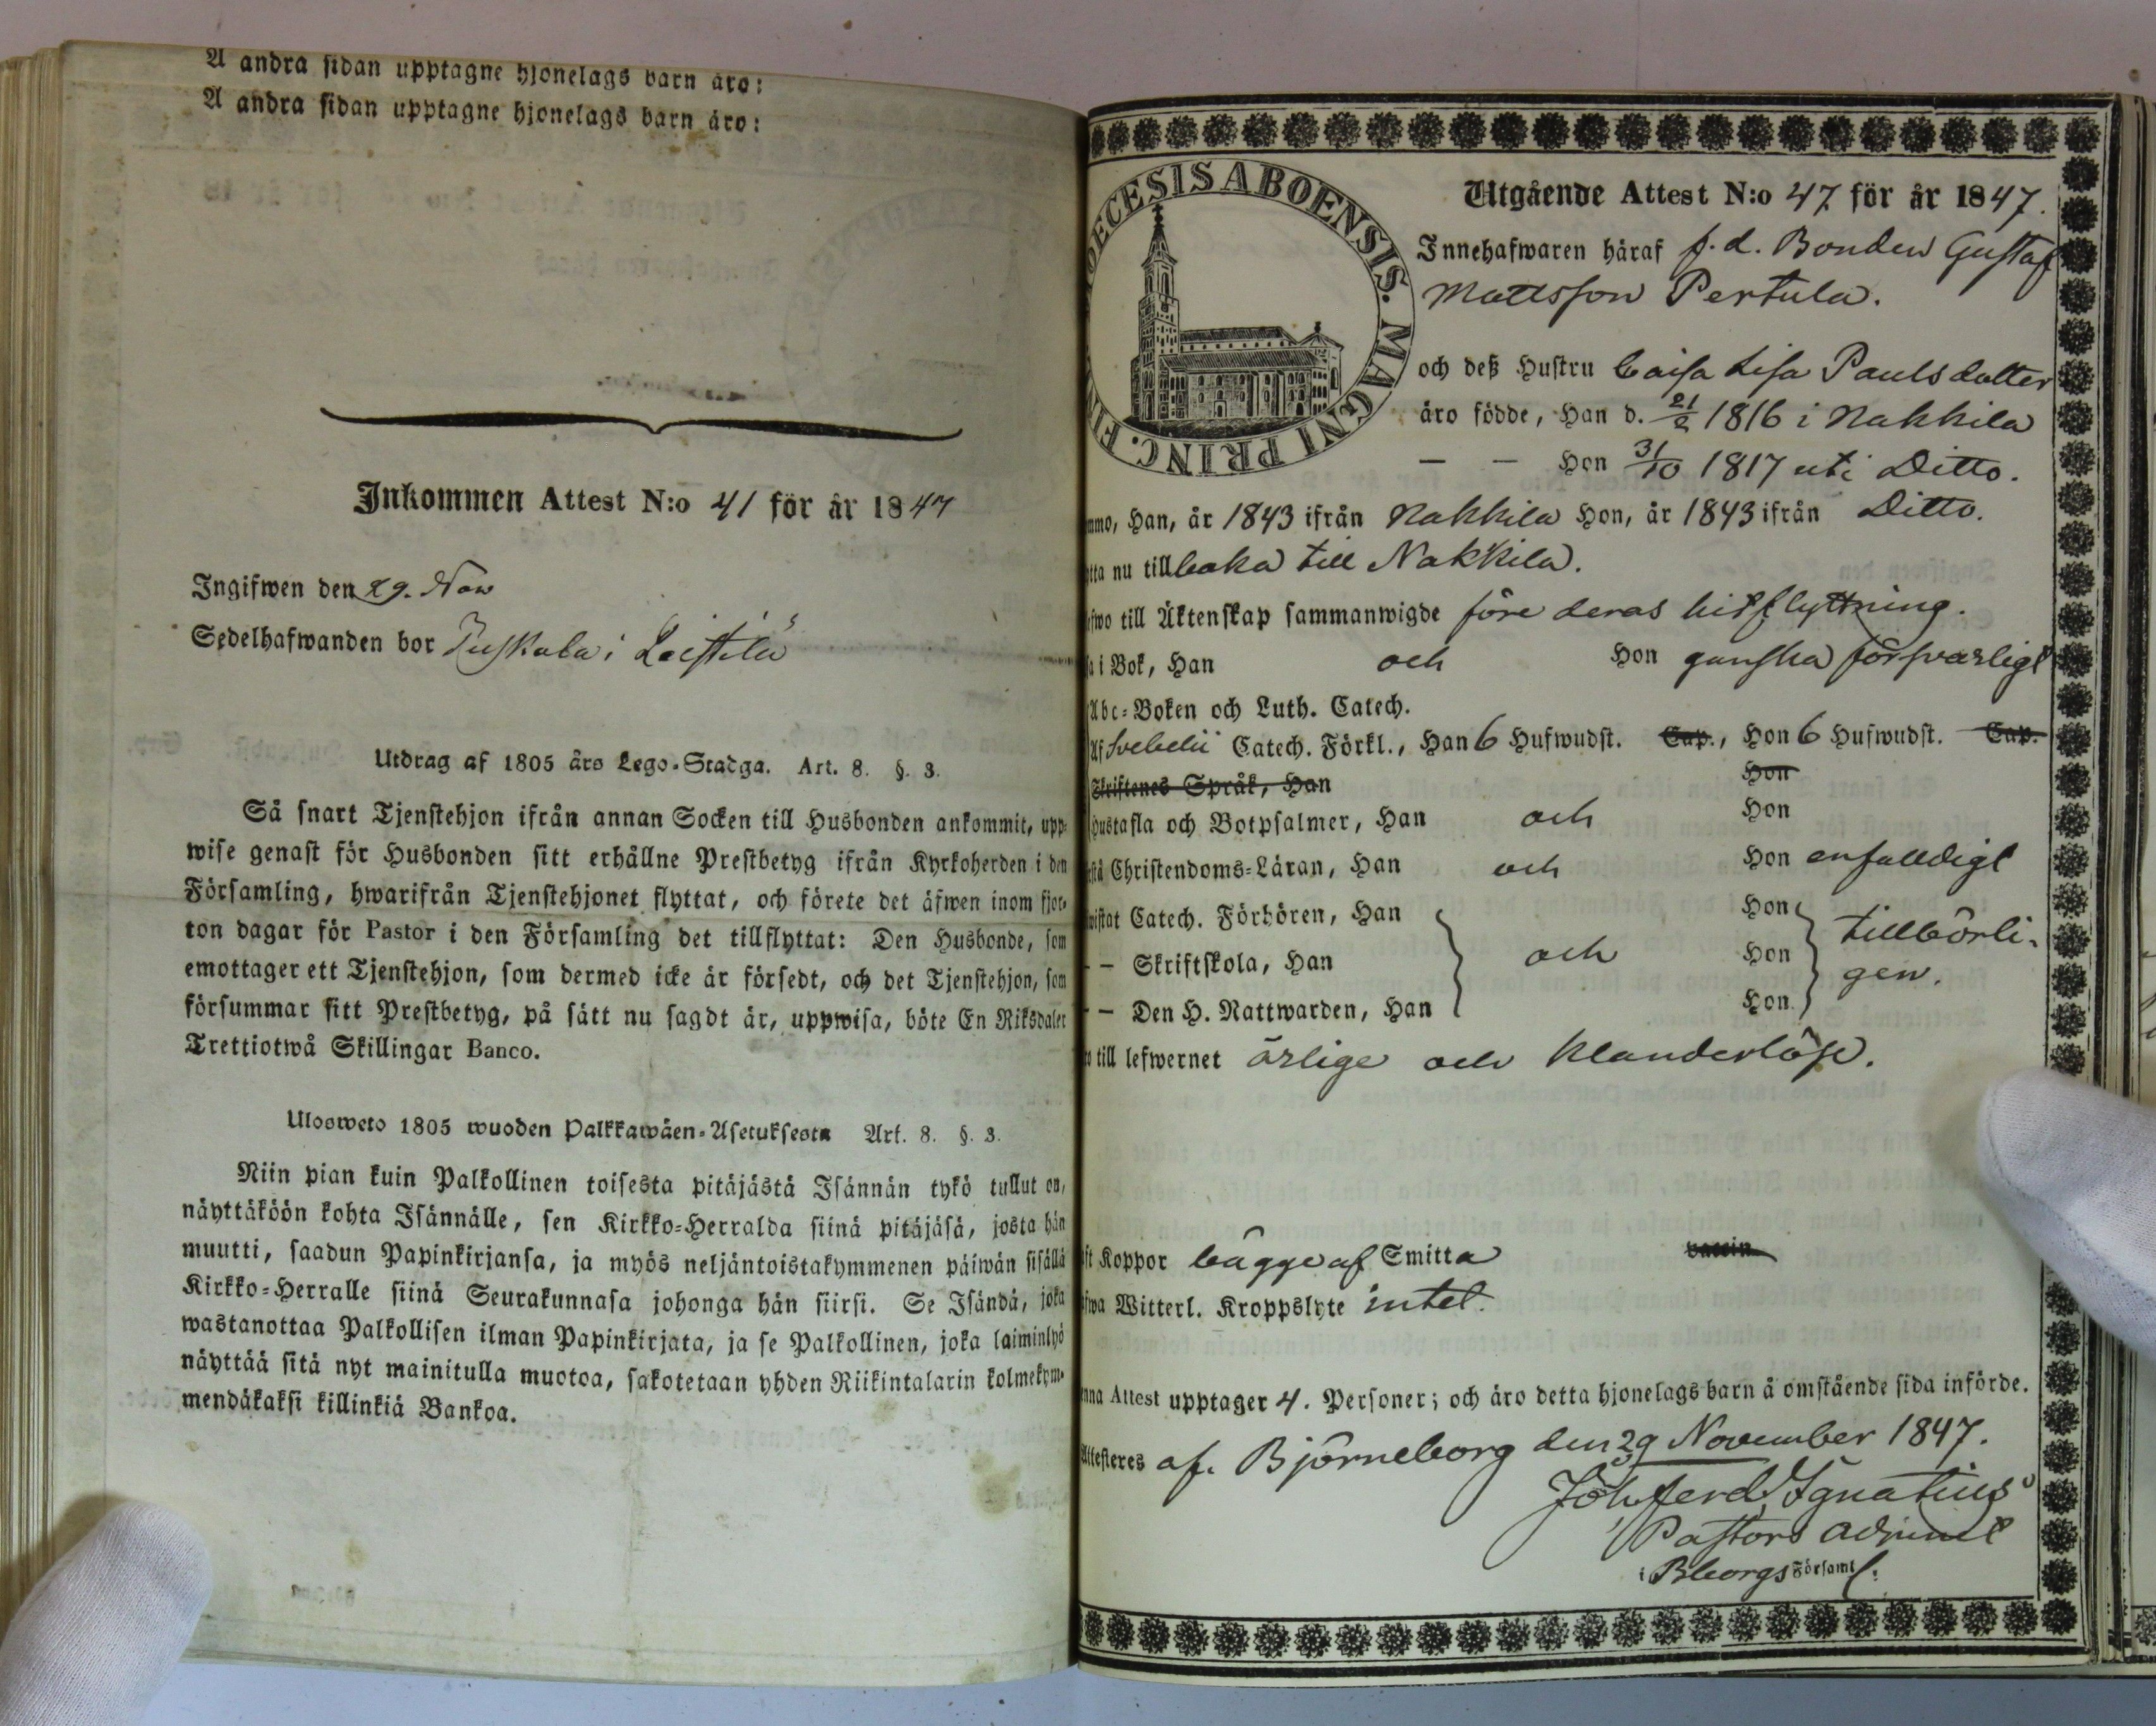 Å andra sidan upptagne hjonelags barn äro:
Å andra sidan upptagne hjonelags barn äro:
Inkommen Attest N:o 41 för år 1847
Ingifwen den 29. Nov
Sedelhafwanden bor i Leistilä
Utdrag af 1805 års Lego-Stadga. Art. 8. §. 3.
Så snart Tjenstehjon ifrån annan Socken till Husbonden ankommit, upp-
wise genast för Husbonden sitt erhållne Prestbetyg ifrån Kyrkoherden i den
Församling, hwarifrån Tjenstehjonet flyttat, och förete det äfwen inom fjor-
ton dagar för Pastor i den Församling det tillflyttat: Den Husbonde, som
emottager ett Tjenstehjon, som dermed icke är försedt, och det Tjenstehjon, som
försummar sitt Prestbetyg, på sätt nu sagdt är, uppwisa, böte En Riksdaler
Trettiotwå Skillingar Banco.
Ulosweto 1805 wuoden Palkkawäen-Asetuksesta Art. 8. §. 3.
Niin pian kuin Palkollinen toisesta pitäjästä Isännän tykö tullut on,
näyttäköön kohta Isännälle, sen Kirkko-Herralda siinä pitäjäsä, josta hän
muutti, saadun Papinkirjansa, ja myös neljäntoistakymmenen päiwän sisällä
Kirkko-Herralle siinä Seurakunnasa johonga hän siirsi. Se Isändä, joka
wastanottaa Palkollisen ilman Papinkirjata, ja se Palkollinen, joka laiminlyö
näyttää sitä nyt mainitulla muotoa, sakotetaan yhden Riikintalarin kolmekym-
mendäkaksi killinkiä Bankoa.
DIOECESIS ABOENSIS. MAGNI PRINC. FIN
Utgående Attest N:o 47 för år 1847.
Innehafwaren häraf f.d. Bonden Gustaf
Mattsson Pertula.
och deß Hustru Caisa Lisa Paulsdotter
äro födde, Han d. 21/2 1816 i Nakkila
— — Hon 31/10 1817 uti Ditto.
mmo, Han, år 1843 ifrån Nakkila Hon, år 1843 ifrån Ditto.
tta nu tillbaka till Nakkila.
efwo till Äktenskap sammanwigde före deras hitflyttning.
sa i Bok, Han och Hon ganska försvarligt
Abc-Boken och Luth. Catech.
Af Svebelii Catech. Förkl., Han 6 Hufwudst. Cap., Hon 6 Hufwudst. Cap.
Skriftenes Språk, Han Hon
Hustafla och Botpsalmer, Han och Hon
stå Christendoms-Läran, Han och Hon enfalldigt
wistat Catech. Förhören, Han Hon
— Skriftskola, Han och Hon tillbörli-
— Den H. Nattwarden, Han Hon gen.
o till lefwernet ärlige och klanderlöse.
ft Koppor bägge af Smitta vaccin
fwa Witterl. Kroppslyte intet.
enna Attest upptager 4. Personer; och äro detta hjonelags barn å omstående sida införde.
Attesteres af. Björneborg den 29 November 1847.
Joh. Ferd. Ignatius
Pastors Adjunct
i Bborgs Församl.